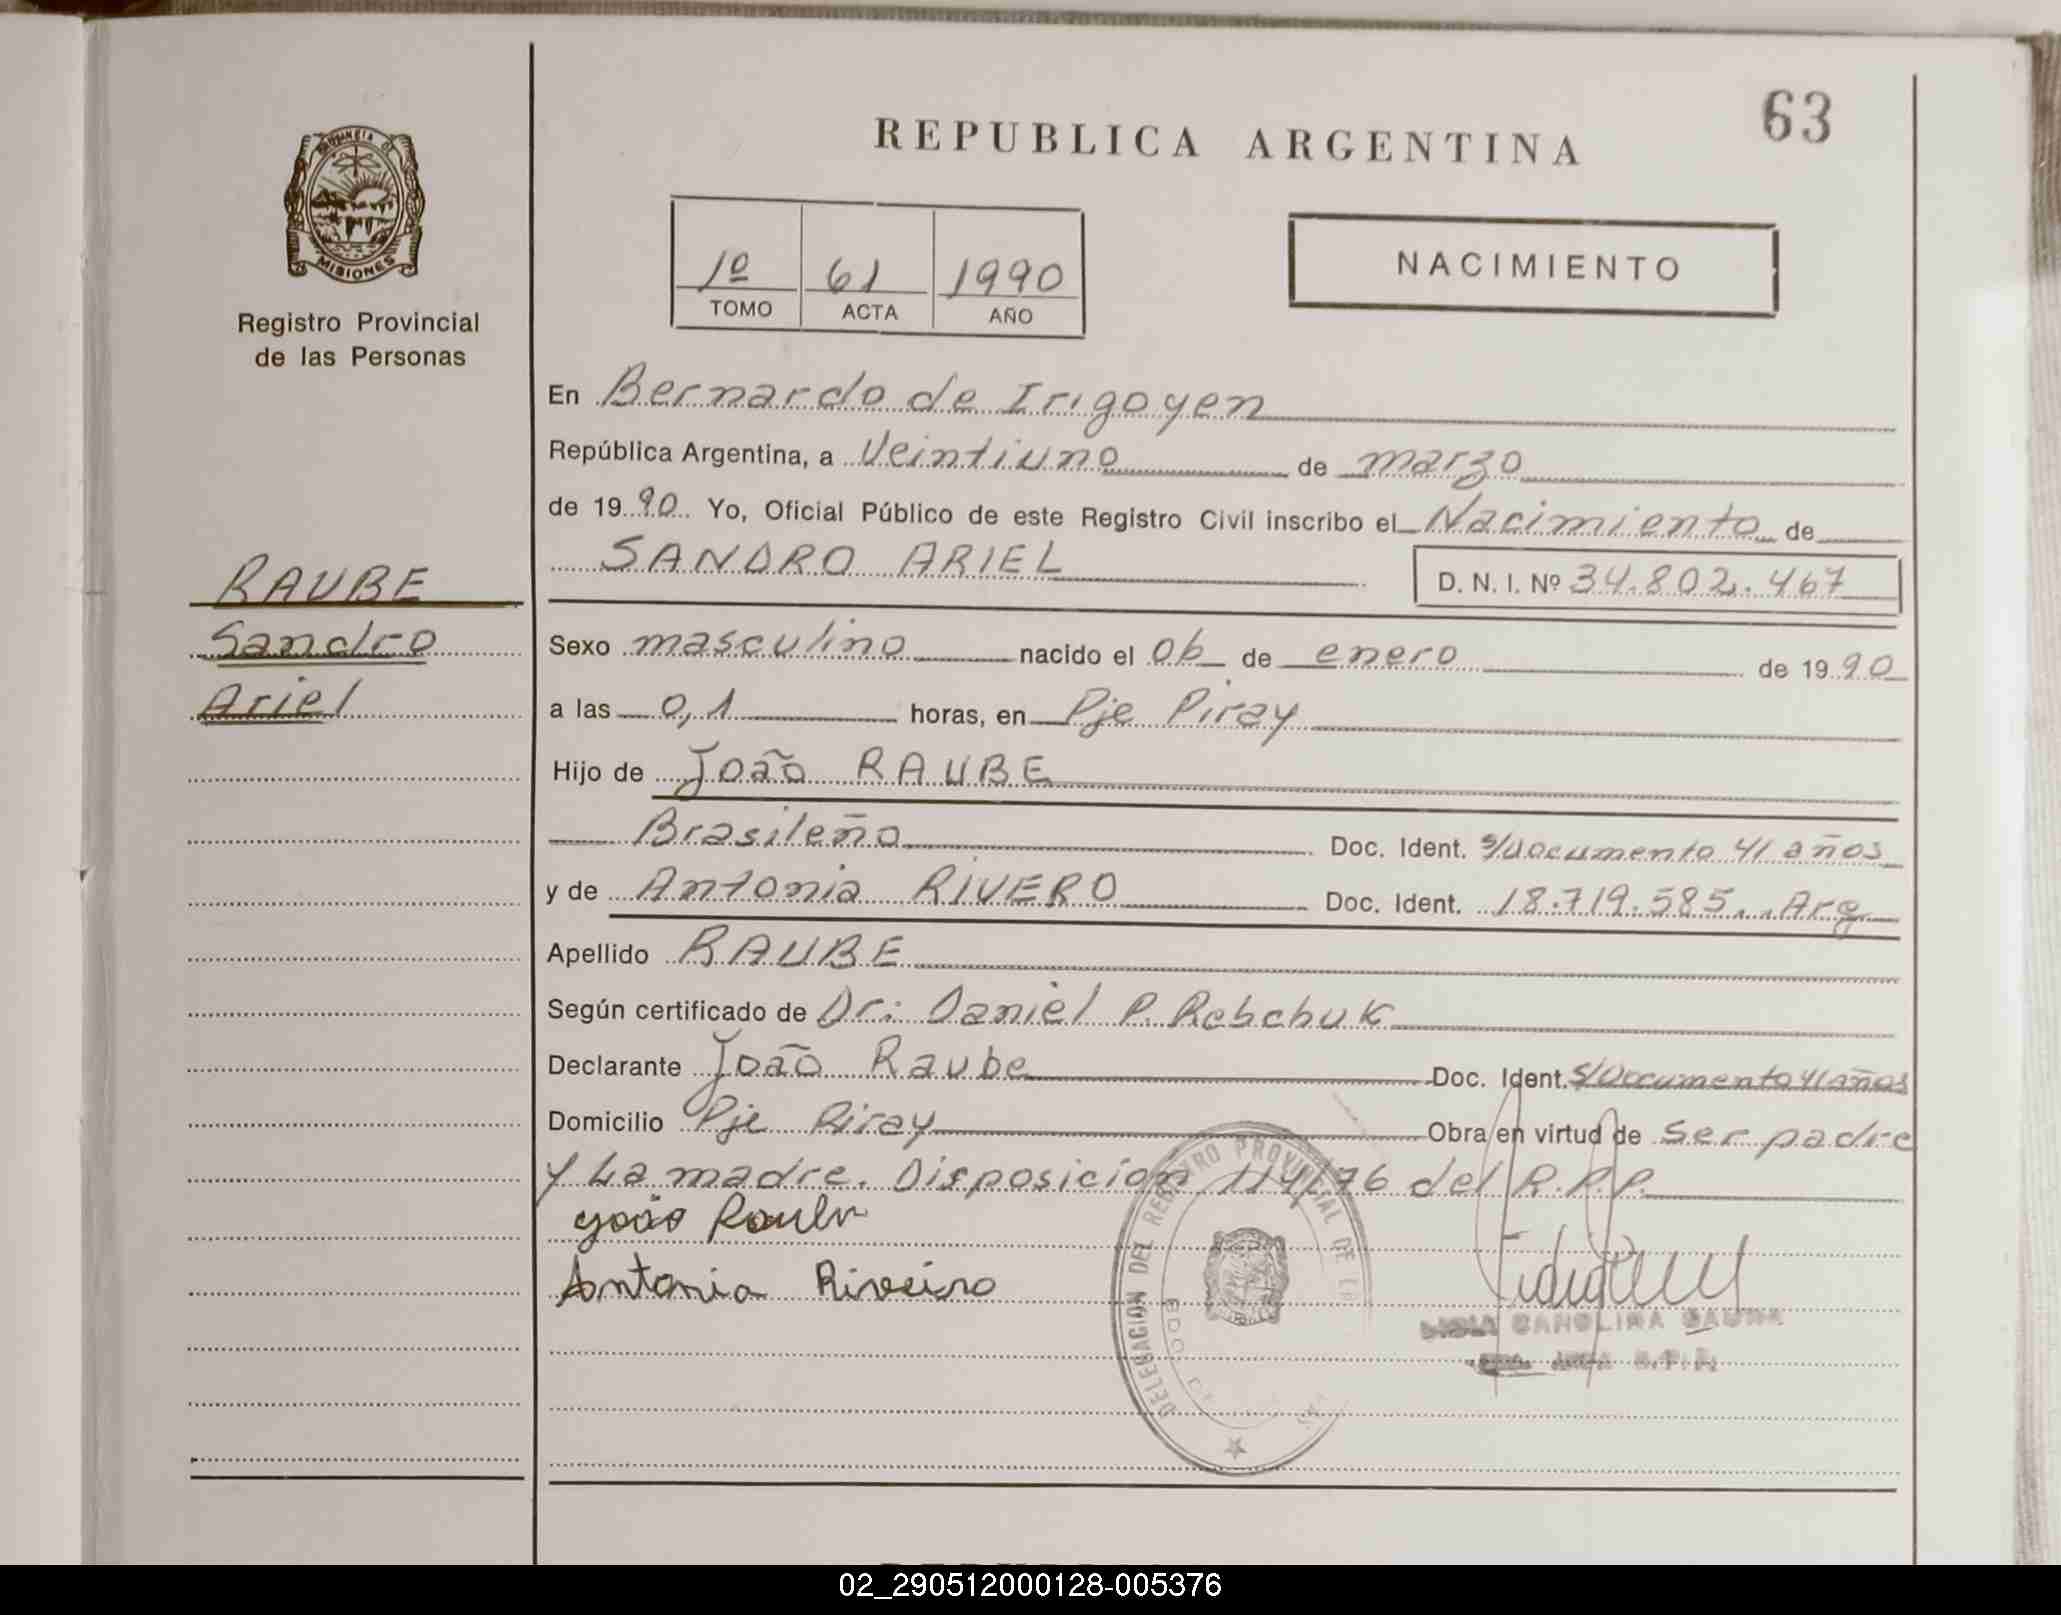 63
REPUBLICA ARGENTINA
PROVINCIA DE
MISIONES
Registro Provincial
de las Personas
1º 61 1990
TOMO ACTA AÑO
NACIMIENTO
En Bernardo de Irigoyen
República Argentina, a Veintiuno de marzo
de 1990 Yo, Oficial Público de este Registro Civil inscribo el Nacimiento de
SANDRO ARIEL D. N. I. Nº 34.802.467
RAUBE
Sandro
Ariel
Sexo masculino nacido el 06 de enero de 1990
a las 0,1 horas, en Pje Piray
Hijo de João RAUBE
Brasileño Doc. Ident. s/documento 41 años
y de Antonia RIVERO Doc. Ident. 18.719.585.. Arg
Apellido RAUBE
Según certificado de Dr: Daniel P. Rebchuk
Declarante João Raube Doc. Ident. S/Documento 41 años
Domicilio Pje Piray Obra en virtud de ser padre
y La madre. Disposicion 114/76 del R.P.P.
João
Antonia Riveiro
DELEGACION DEL REGISTRO PROVINCIAL DE
CAROLINA
02_290512000128-005376